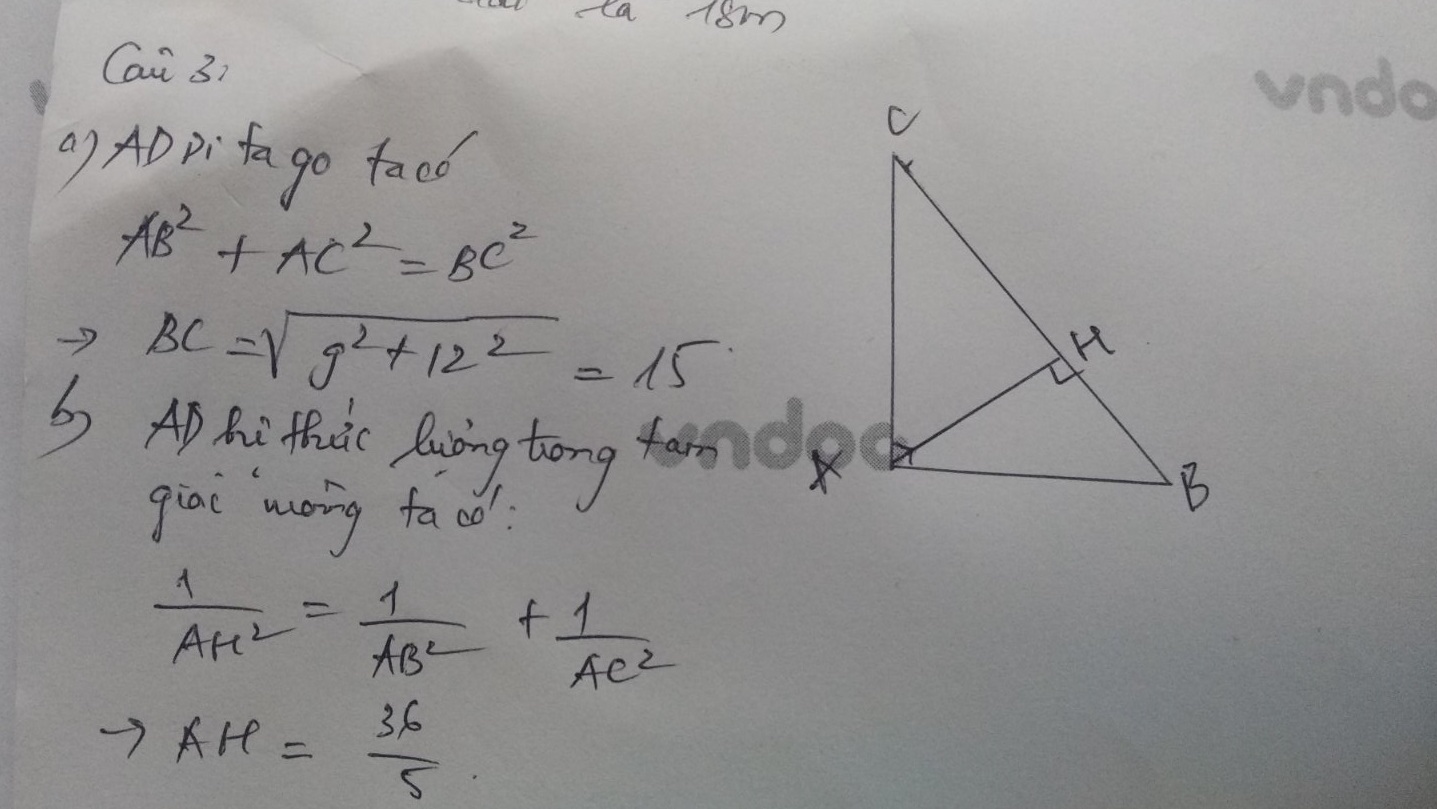 là 18m
Câu 3:
a) AD pi ta go ta có
AB² + AC² = BC²
→ BC = √(9² + 12²) = 15
b) AD hệ thức lượng trong tam
giác vuông ta có:
1/AH² = 1/AB² + 1/AC²
→ AH = 36/5.
C
H
A
B
vndo
vndoc